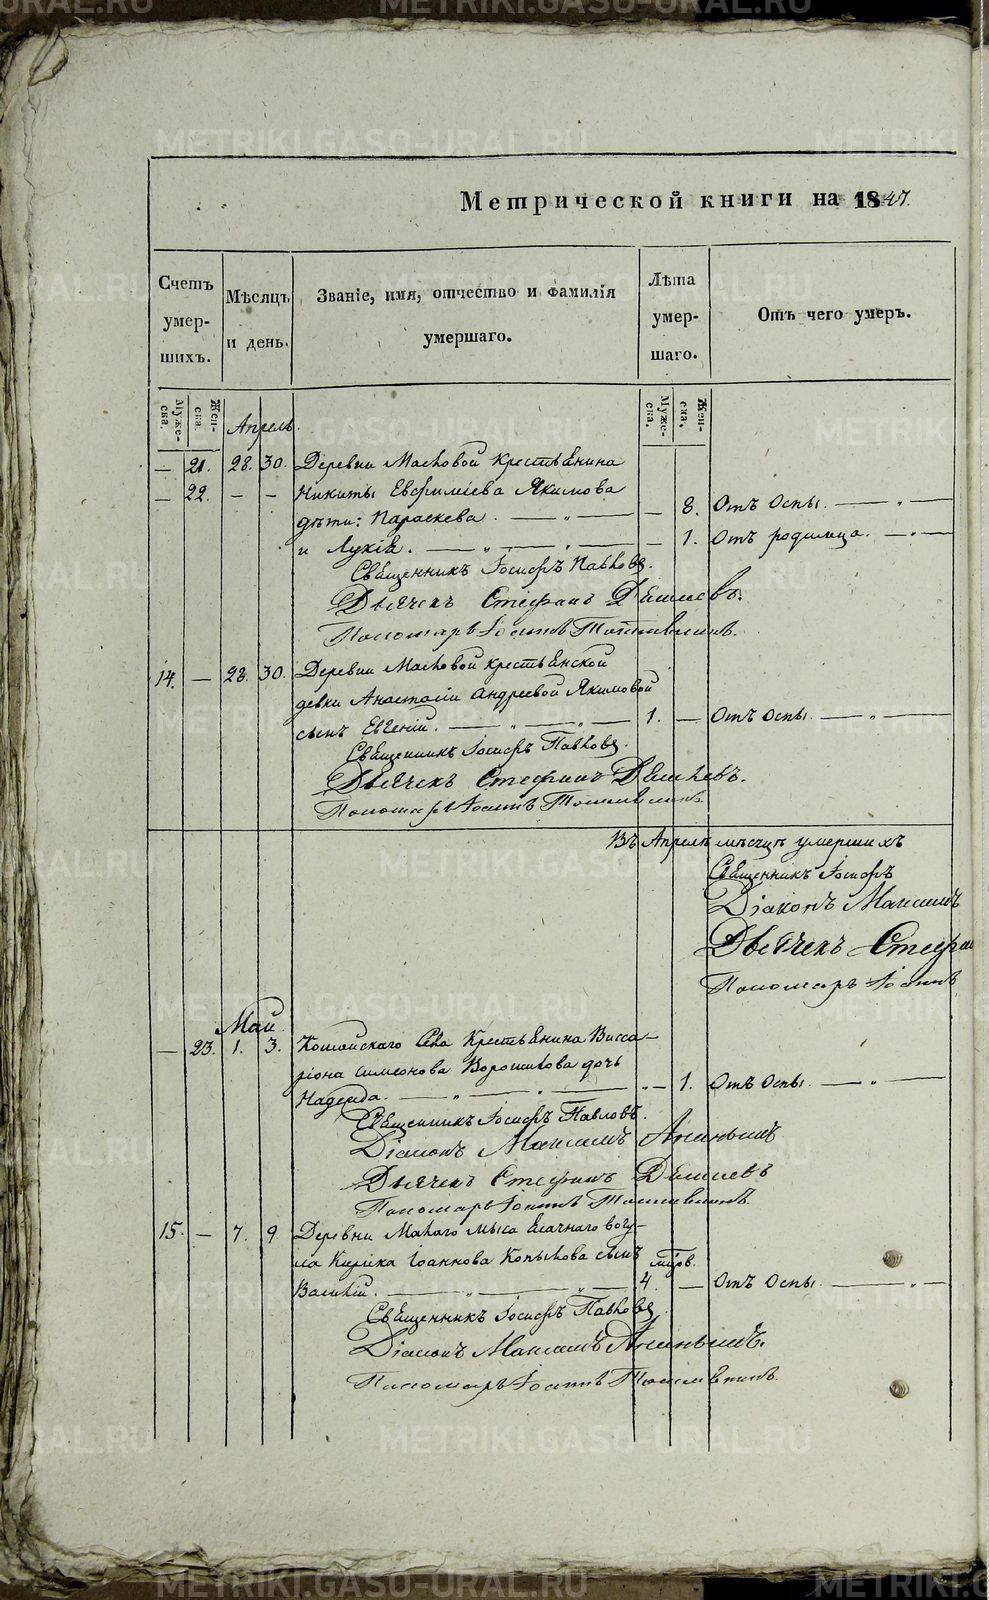 METRIKI.GASO-URAL.RU
Метрической книги на 1847.
Счетъ умер-шихъ.
Мѣсяцъ и день.
Званіе, имя, отчество и фамилія умершаго.
Лѣта умер-шаго.
Отъ чего умеръ.
Муже-ска.
Жен-ска.
Муже-ска.
Жен-ска.
Апрель.
— 21. 28. 30. Деревни Масловой Крестьянина
— 22. — — Никиты Евфиміева Якимова
дѣти: Параскева. — „ — — 8. Отъ Оспы. — „ —
и Лукія. — „ — „ — — 1. Отъ родимца. — „ —
Священникъ Іосифъ Павловъ.
Дьячекъ Стефанъ
Пономарь Іоаннъ
14. — 28. 30. Деревни Масловой крестьянской
девки Анастасіи Андреевой Якимовой
сынъ Евгеній. — „ — „ — 1. — Отъ Оспы. — „ —
Священникъ Іосифъ Павловъ.
Дьячекъ Стефанъ
Пономарь Іоаннъ
Въ Апрелѣ мѣсяцѣ умершихъ
Священникъ Іосифъ
Діаконъ Максимъ
Дьячекъ Стефан
Пономарь Іоаннъ
Май.
— 23. 1. 3. Кошайскаго Села Крестьянина Висса-
ріона Симеонова Ворошилова дочь
Надежда. — „ — „ — „ — 1. Отъ Оспы. — „ —
Священникъ Іосифъ Павловъ.
Діаконъ Максимъ
Дьячекъ Стефанъ
Пономарь Іоаннъ
15. — 7. 9 Деревни Малаго мыса Ясачнаго вогу-
ла Кирика Іоаннова Копылова сынъ
Василій. — „ — „ — 4. — Отъ Оспы. — „ —
Священникъ Іосифъ Павловъ
Діаконъ Максимъ
Пономарь Іоаннъ